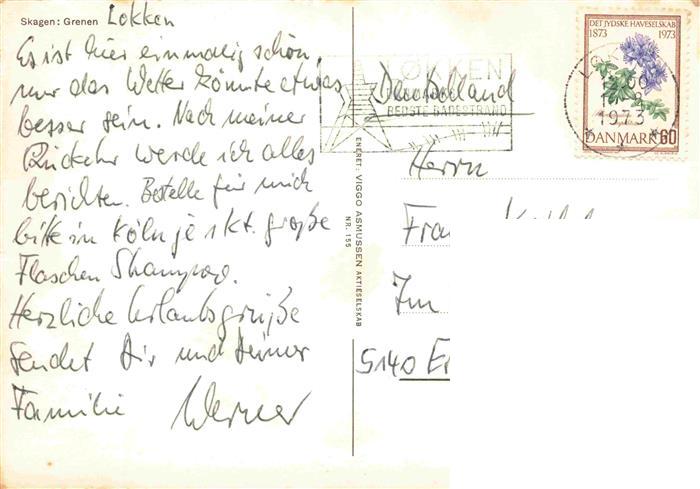 Skagen: Grenen
Lokken
Es ist hier einmalig schön,
nur das Wetter könnte etwas
besser sein. Nach meiner
Rückkehr werde ich alles
berichten. Bestelle für mich
bitte in Köln je 1 kt. große
Flaschen Shampoo.
Herzliche Urlaubsgrüße
sendet Dir und Deiner
Familie Werner
ENERET: VIGGO ASMUSSEN AKTIESELSKAB
NR. 155
LØKKEN
BEDSTE BADESTRAND
DET JYDSKE HAVESELSKAB
1873 1973
DANMARK 60
1973
Deutschland
Herrn
Im
5140